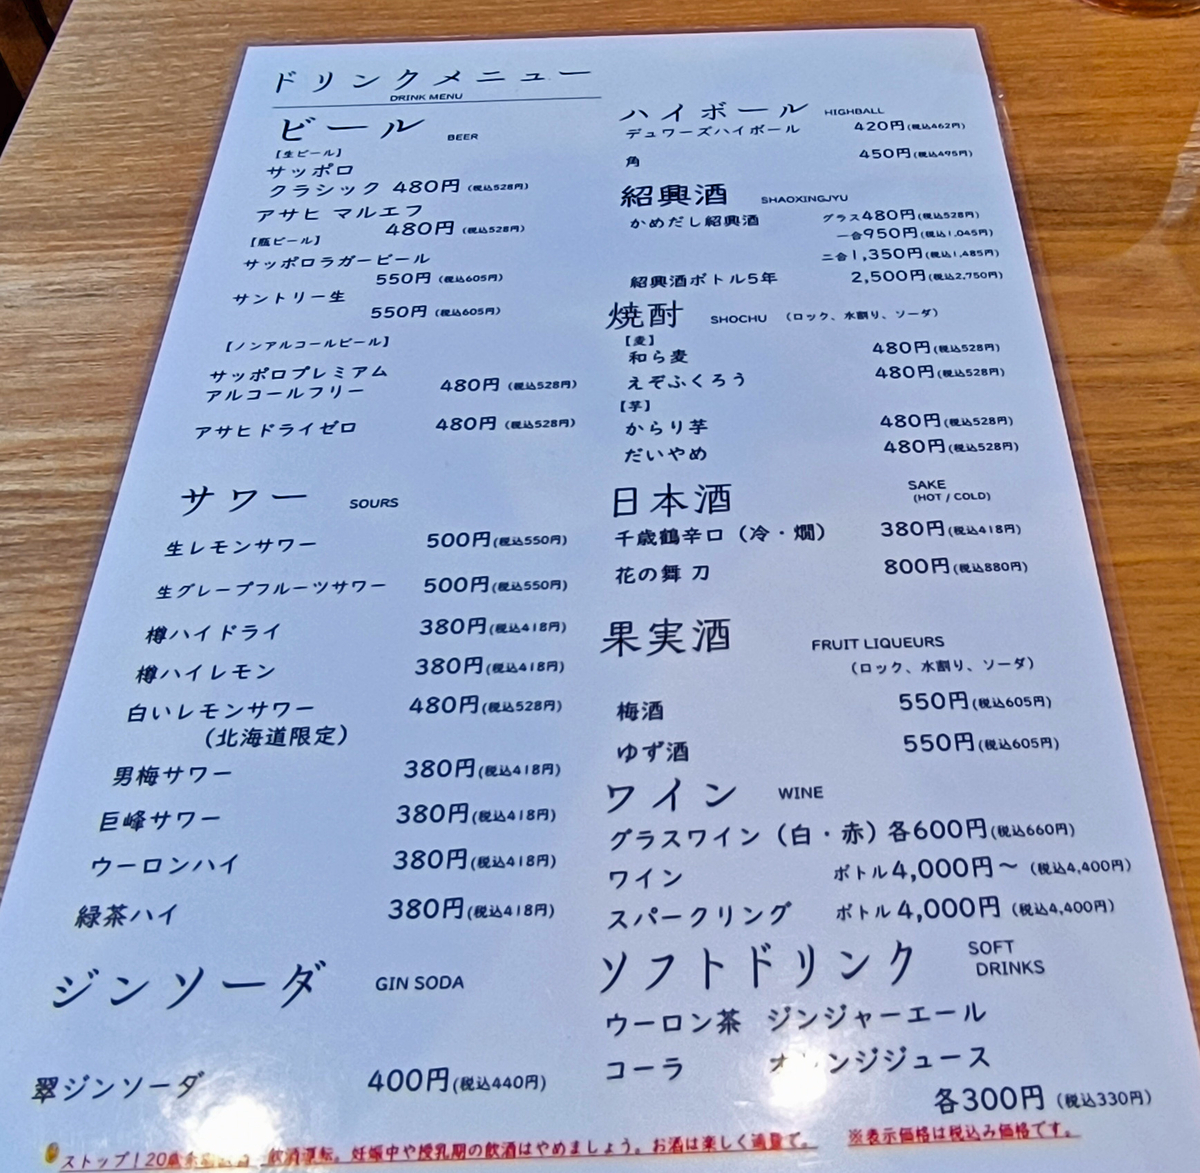 ドリンクメニュー
DRINK MENU
ビール BEER
【生ビール】
サッポロ
クラシック 480円 (税込528円)
アサヒ マルエフ
480円 (税込528円)
【瓶ビール】
サッポロラガービール
550円 (税込605円)
サントリー生
550円 (税込605円)
【ノンアルコールビール】
サッポロプレミアム
アルコールフリー 480円 (税込528円)
アサヒドライゼロ 480円 (税込528円)
サワー SOURS
生レモンサワー 500円(税込550円)
生グレープフルーツサワー 500円(税込550円)
樽ハイドライ 380円(税込418円)
樽ハイレモン 380円(税込418円)
白いレモンサワー 480円(税込528円)
(北海道限定)
男梅サワー 380円(税込418円)
巨峰サワー 380円(税込418円)
ウーロンハイ 380円(税込418円)
緑茶ハイ 380円(税込418円)
ジンソーダ GIN SODA
翠ジンソーダ 400円(税込440円)
ハイボール HIGHBALL
デュワーズハイボール 420円(税込462円)
角 450円(税込495円)
紹興酒 SHAOXINGJYU
かめだし紹興酒 グラス480円(税込528円)
一合950円(税込1,045円)
二合1,350円(税込1,485円)
紹興酒ボトル5年 2,500円(税込2,750円)
焼酎 SHOCHU (ロック、水割り、ソーダ)
【麦】
和ら麦 480円(税込528円)
えぞふくろう 480円(税込528円)
【芋】
からり芋 480円(税込528円)
だいやめ 480円(税込528円)
日本酒 SAKE
(HOT / COLD)
千歳鶴辛口(冷・燗) 380円(税込418円)
花の舞 刀 800円(税込880円)
果実酒 FRUIT LIQUEURS
(ロック、水割り、ソーダ)
梅酒 550円(税込605円)
ゆず酒 550円(税込605円)
ワイン WINE
グラスワイン(白・赤)各600円(税込660円)
ワイン ボトル4,000円〜 (税込4,400円)
スパークリング ボトル4,000円 (税込4,400円)
ソフトドリンク SOFT
DRINKS
ウーロン茶 ジンジャーエール
コーラ オレンジジュース
各300円 (税込330円)
ストップ!20歳 飲酒運転。妊娠中や授乳期の飲酒はやめましょう。お酒は楽しく適量で。 ※表示価格は税込み価格です。